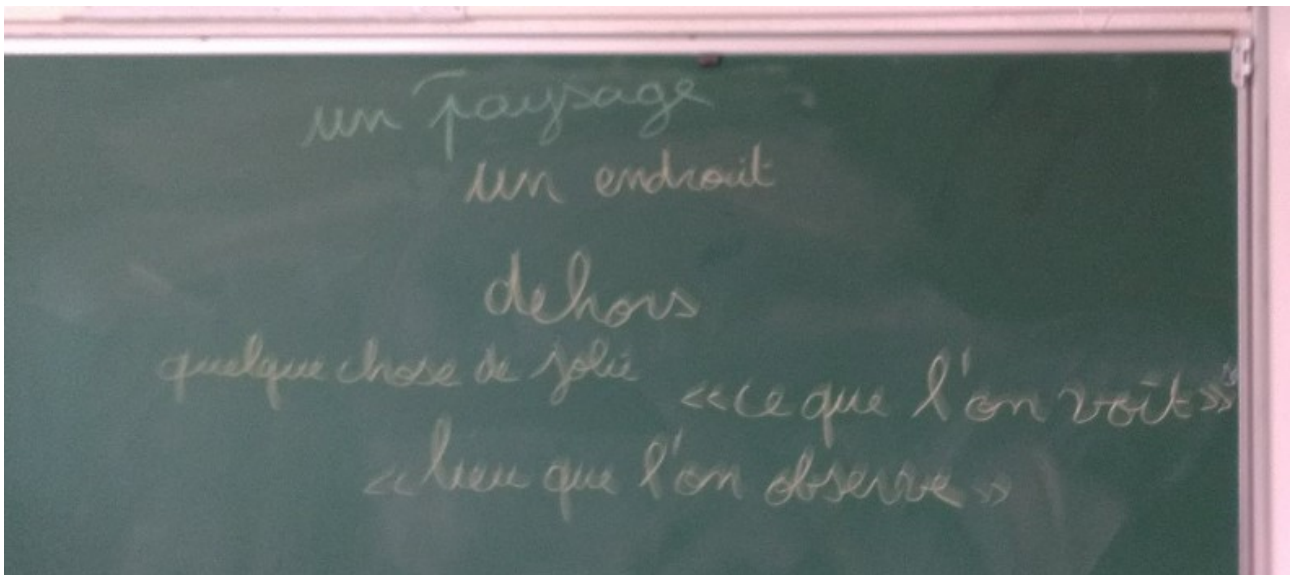 un paysage
un endroit
dehors
quelque chose de jolie
«ce que l'on voît»
«lieu que l'on observe»